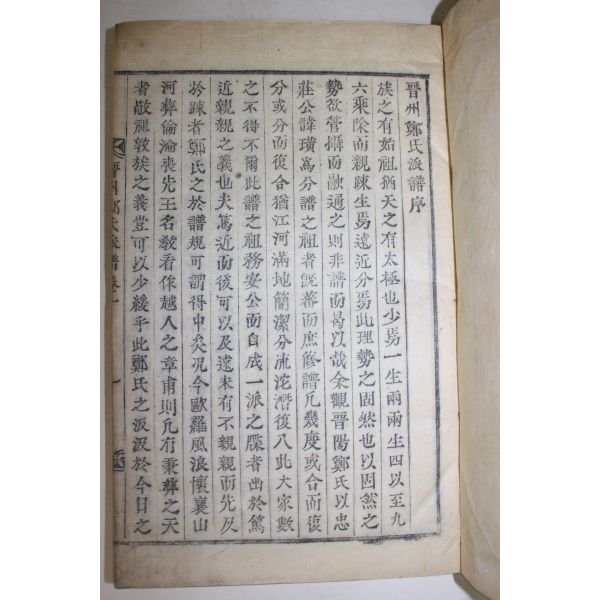 晋州鄭氏派譜序
族之有始祖猶天之有太極也少焉一生兩兩生四以至九
六乘除而親踈生焉遠近分焉此理勢之固然也以固然之
勢欲管攝而融通之則非譜而曷以哉余觀晋陽鄭氏以忠
莊公諱璜爲分譜之祖者旣善而庶修譜凡幾度或合而復
分或分而復合猶江河滿地簡潔分流沱潛復入此大家數
之不得不爾此譜之祖務安公而自成一派之牒者出於篤
近親親之義也夫篤近而後可以及遠未有不親親而先及
於踈者鄭氏之於譜規可謂得中矣况今歐羅風浪懷襄山
河彛倫淪喪先王名敎看作越人之章甫則凡有秉彛之天
者敬祖敦族之義豈可以少緩乎此鄭氏之汲汲於今日之
晋州鄭氏派譜卷一
一